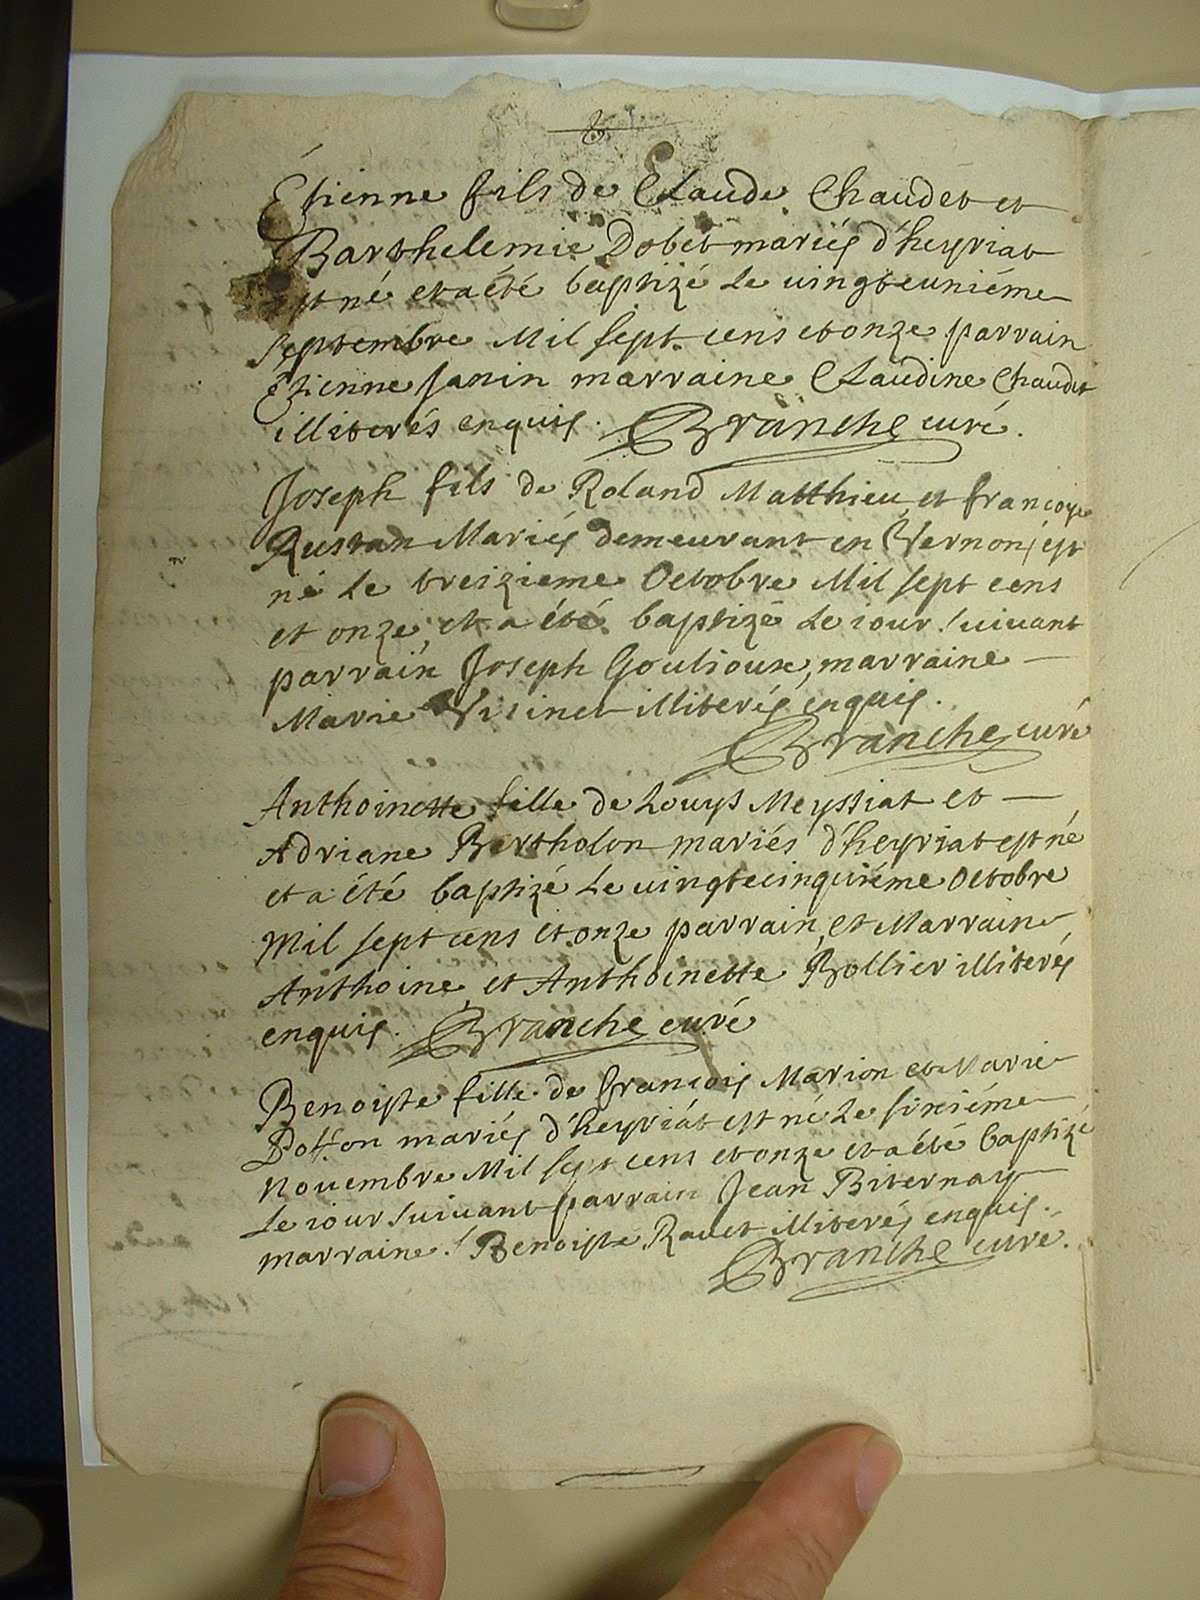 8
Etienne fils de Claude Chaudet et
Barthelemie Dobet mariés d'heyriat
est né et a été baptizé le vingteuniéme
septembre Mil sept cens et onze parrain
Etienne Janin marraine Claudine Chaudet
illiterés enquis. Branche curé.
Joseph fils de Roland Matthieu et françoise
Rustan Mariés demeurant en Vernon, est
né le treizieme Octobre Mil sept cens
et onze, et a été baptizé le iour suivant
parrain Joseph Goulioux, marraine
Marie Virinet illiterés enquis.
Branche curé
Anthoinette fille de Louys Meyssiat et
Adriane Bertholon mariés d'heyriat est né
et a été baptizé le vingtecinquiéme Octobre
Mil sept cens et onze parrain, et Marraine
Anthoine, et Anthoinette Bollier illiterés
enquis. Branche curé
Benoiste fille de françois Marion et Marie
mariés d'heyriat est né le sixiéme
Novembre Mil sept cens et onze et a été baptizé
le iour suivant parrain Jean Biternay
marraine Benoiste Ravet illiterés enquis.
Branche curé.